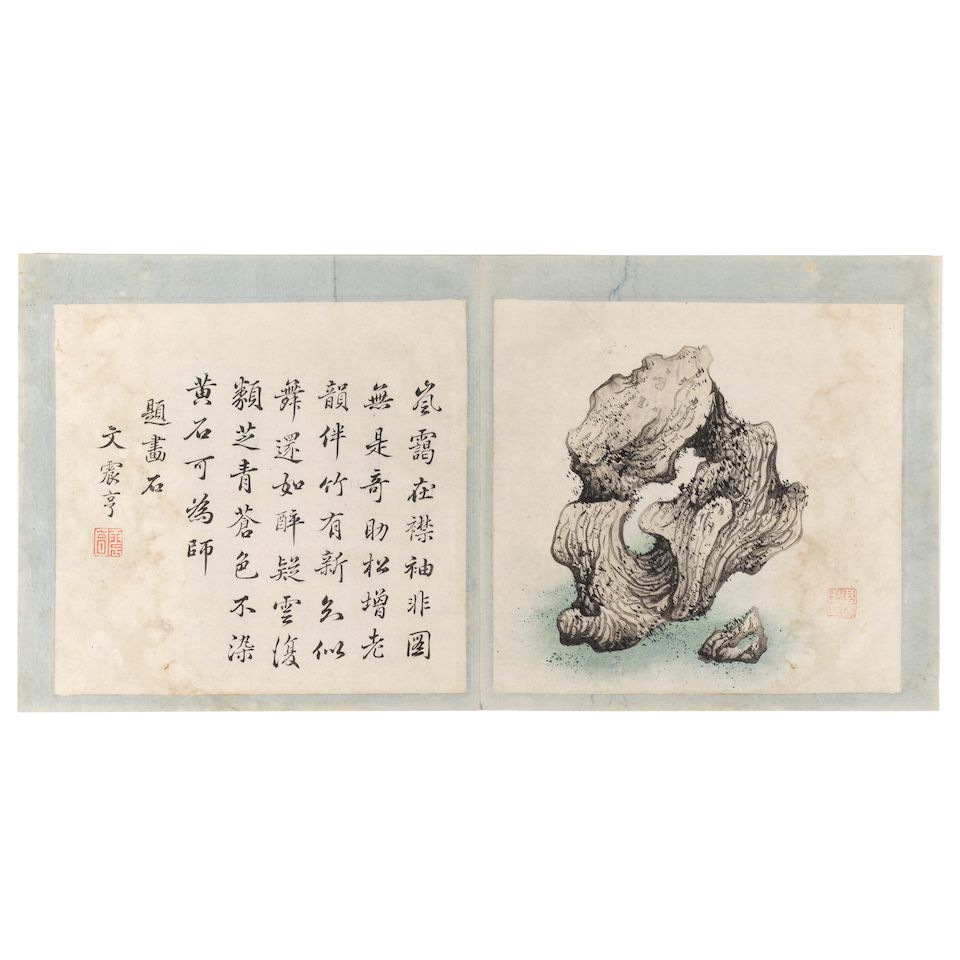 嵐靄在襟袖非圖
無是奇助松增老
韻伴竹有新姿似
舞還如醉疑雲復
類芝青蒼色不染
黃石可為師
題畫石
文震亨